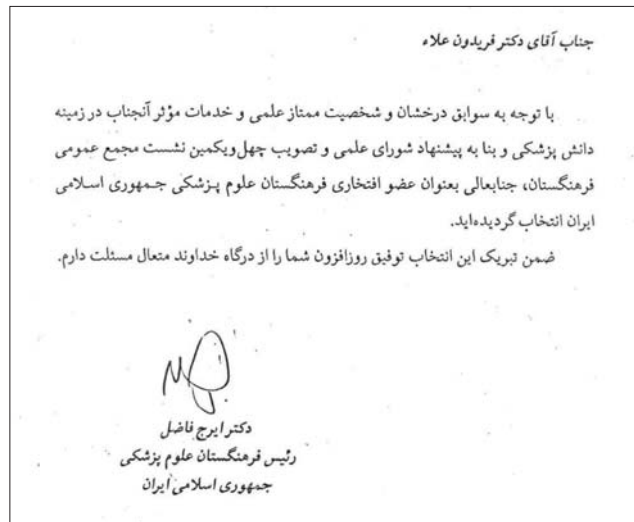 جناب آقای دکتر فریدون علاء
با توجه به سوابق درخشان و شخصیت ممتاز علمی و خدمات مؤثر آنجناب در زمینه
دانش پزشکی و بنا به پیشنهاد شورای علمی و تصویب چهل‌ویکمین نشست مجمع عمومی
فرهنگستان، جنابعالی بعنوان عضو افتخاری فرهنگستان علوم پزشکی جمهوری اسلامی
ایران انتخاب گردیده‌اید.
ضمن تبریک این انتخاب توفیق روزافزون شما را از درگاه خداوند متعال مسئلت دارم.
دکتر ایرج فاضل
رئیس فرهنگستان علوم پزشکی
جمهوری اسلامی ایران